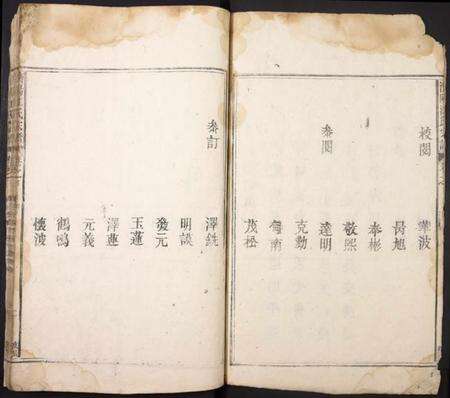 校閱
華波
昺旭
奉彬
參閱
敬熙
達明
克勤
粵南
茂松
參訂
澤銑
明談
發元
玉蓮
澤蓮
元義
鶴鳴
懷波